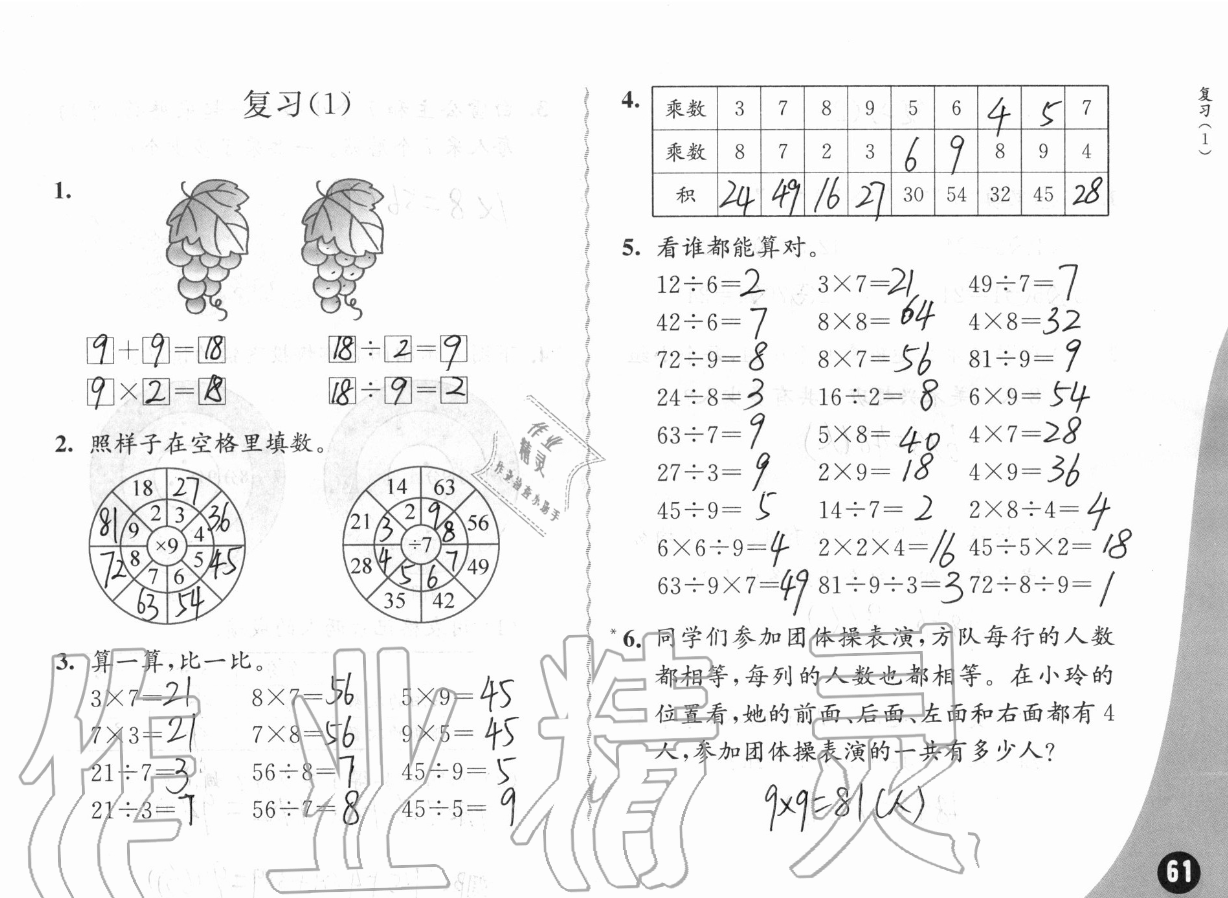 复习(1)
1.
9+9=18 18÷2=9
9×2=18 18÷9=2
2. 照样子在空格里填数。
18 27 36 45 54 63 72 81
2 3 4 5 6 7 8 9
×9
14 63 56 49 42 35 28 21
2 9 8 7 6 5 4 3
÷7
3. 算一算,比一比。
3×7=21 8×7=56 5×9=45
7×3=21 7×8=56 9×5=45
21÷7=3 56÷8=7 45÷9=5
21÷3=7 56÷7=8 45÷5=9
4.
乘数 3 7 8 9 5 6 4 5 7
乘数 8 7 2 3 6 9 8 9 4
积 24 49 16 27 30 54 32 45 28
5. 看谁都能算对。
12÷6=2 3×7=21 49÷7=7
42÷6=7 8×8=64 4×8=32
72÷9=8 8×7=56 81÷9=9
24÷8=3 16÷2=8 6×9=54
63÷7=9 5×8=40 4×7=28
27÷3=9 2×9=18 4×9=36
45÷9=5 14÷7=2 2×8÷4=4
6×6÷9=4 2×2×4=16 45÷5×2=18
63÷9×7=49 81÷9÷3=3 72÷8÷9=1
*6. 同学们参加团体操表演,方队每行的人数
都相等,每列的人数也都相等。在小玲的
位置看,她的前面、后面、左面和右面都有 4
人,参加团体操表演的一共有多少人?
9×9=81(人)
复习(1)
61
作业
精灵
作业检查小助手
作业精灵